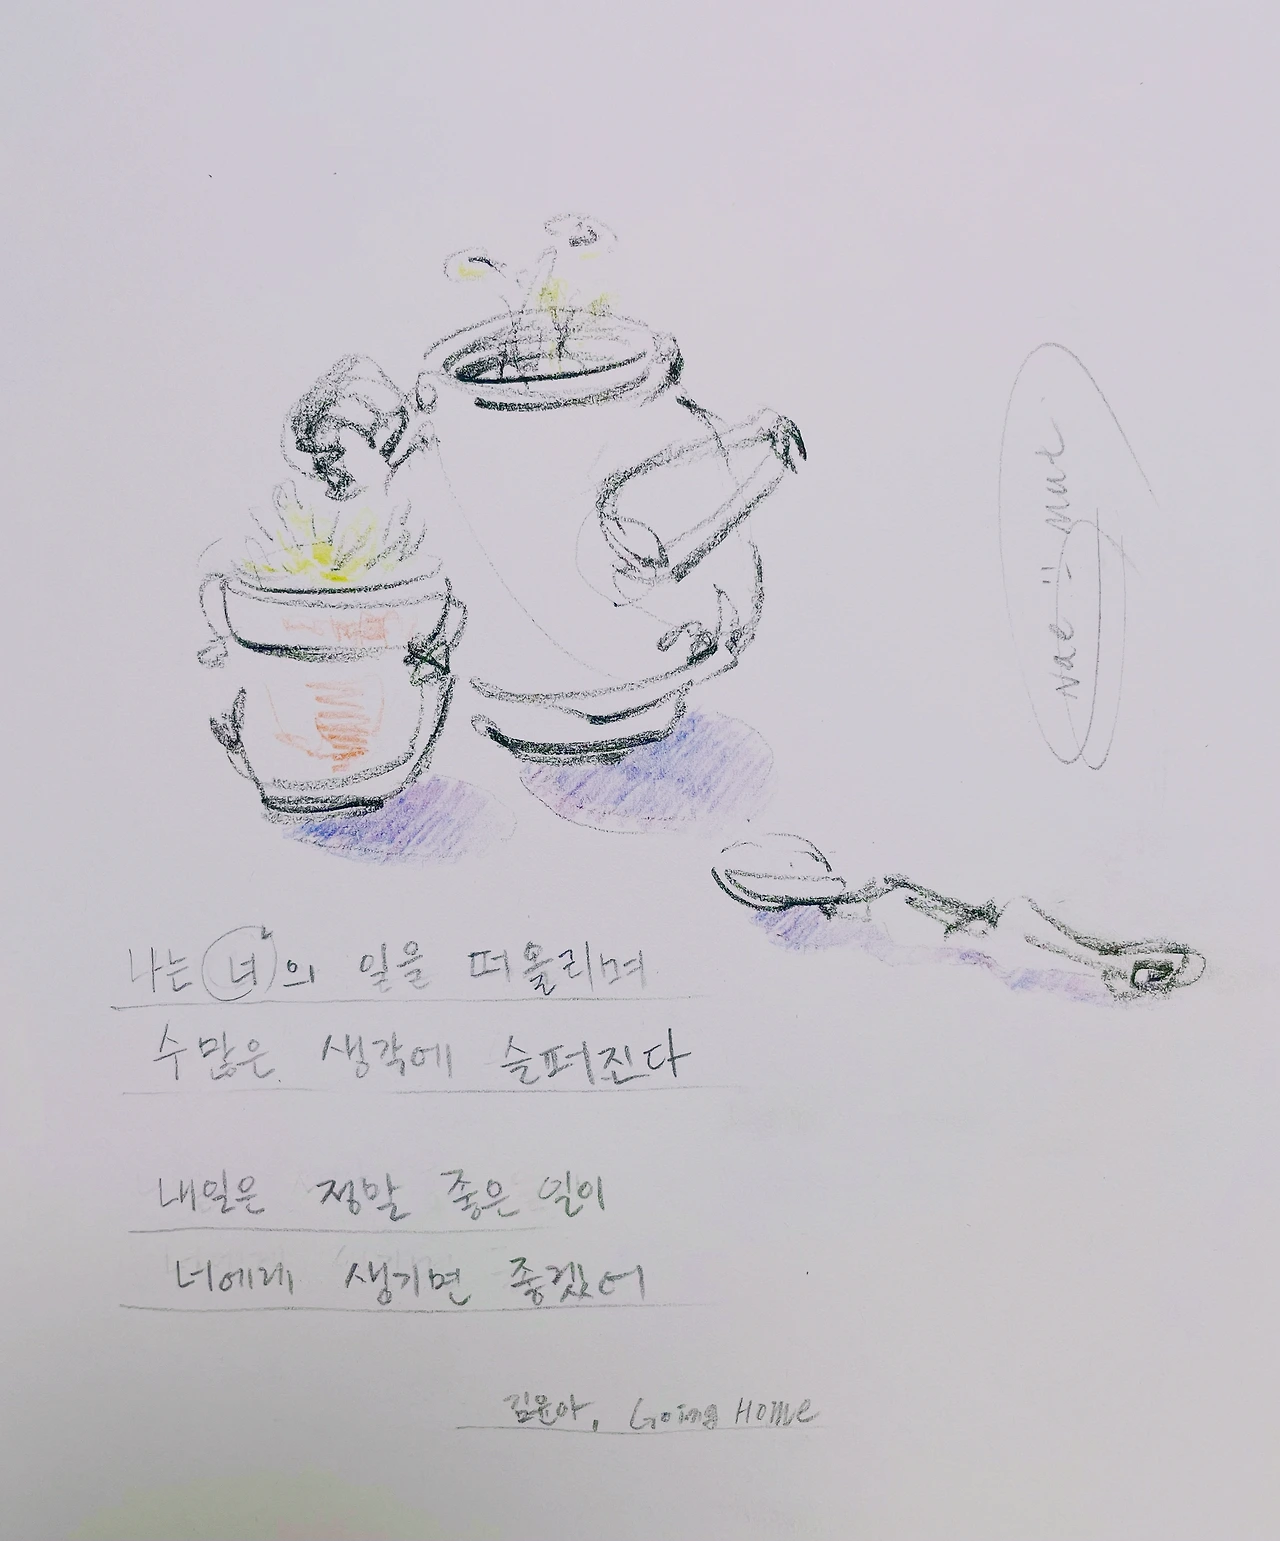 나는 너의 일을 떠올리며
수많은 생각에 슬퍼진다
내일은 정말 좋은 일이
너에게 생기면 좋겠어
김윤아, Going Home